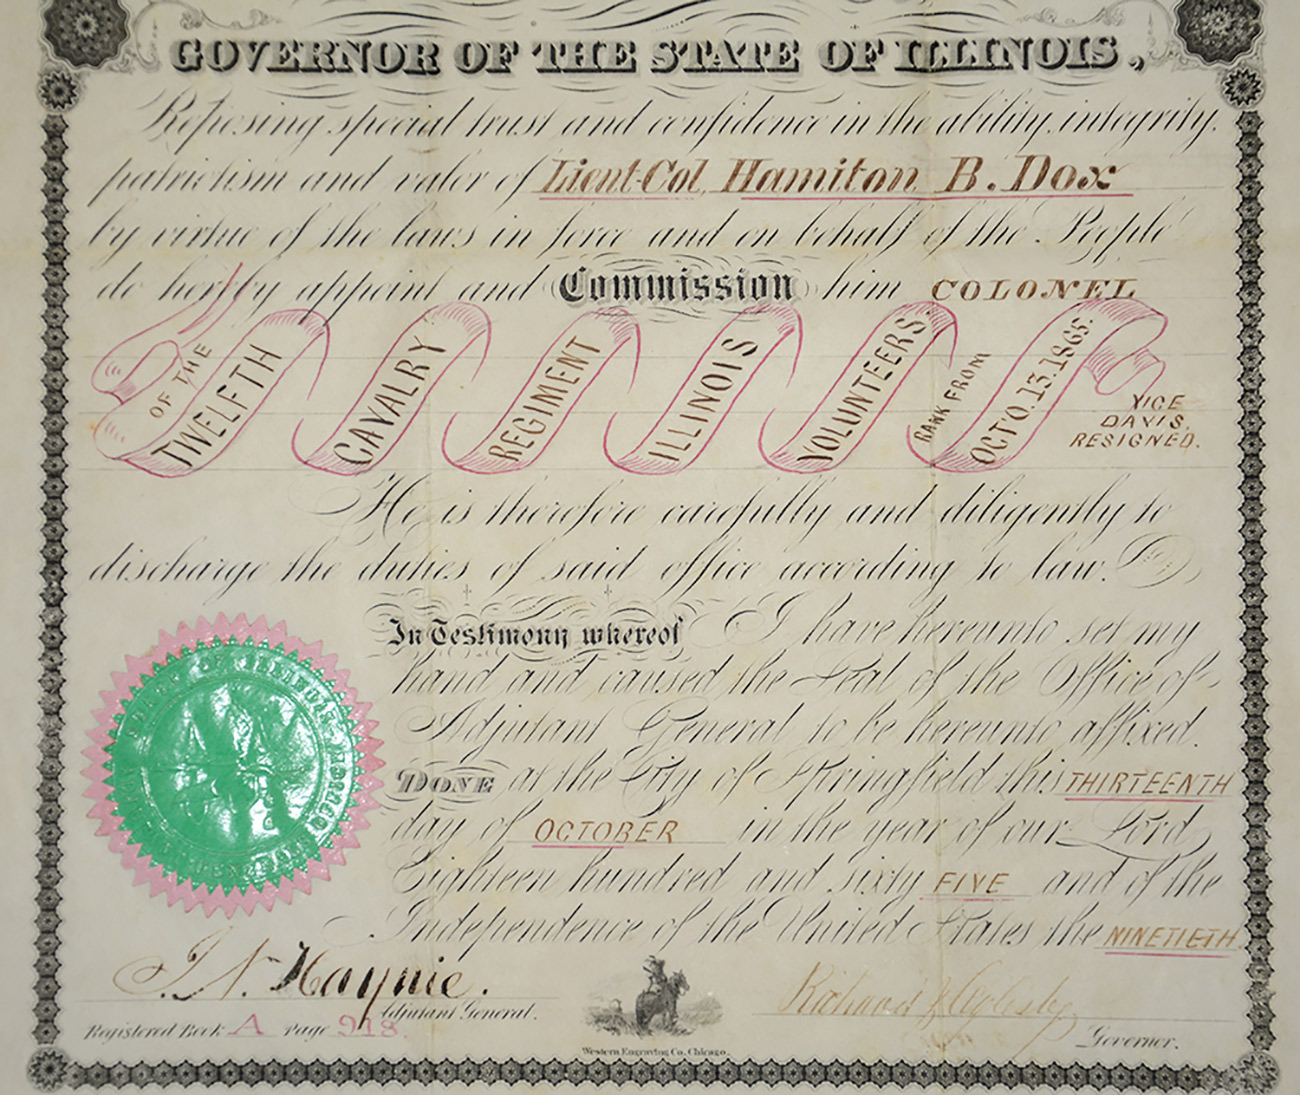 GOVERNOR OF THE STATE OF ILLINOIS,
Reposing special trust and confidence in the ability, integrity,
patriotism and valor of Lieut-Col. Hamilton B. Dox
by virtue of the laws in force and on behalf of the People
do hereby appoint and Commission him COLONEL
OF THE TWELFTH CAVALRY REGIMENT ILLINOIS VOLUNTEERS. RANK FROM OCTO. 13. 1865.
VICE
DAVIS,
RESIGNED.
He is therefore carefully and diligently to
discharge the duties of said office according to law.
In Testimony whereof I have hereunto set my
hand and caused the Seal of the Office of
Adjutant General to be hereunto affixed.
DONE at the City of Springfield this THIRTEENTH
day of OCTOBER in the year of our Lord
Eighteen hundred and sixty FIVE and of the
Independence of the United States the NINETIETH
I. N. Haynie.
Adjutant General.
Registered Book A Page 918.
Western Engraving Co. Chicago.
Richard J Oglesby
Governor.